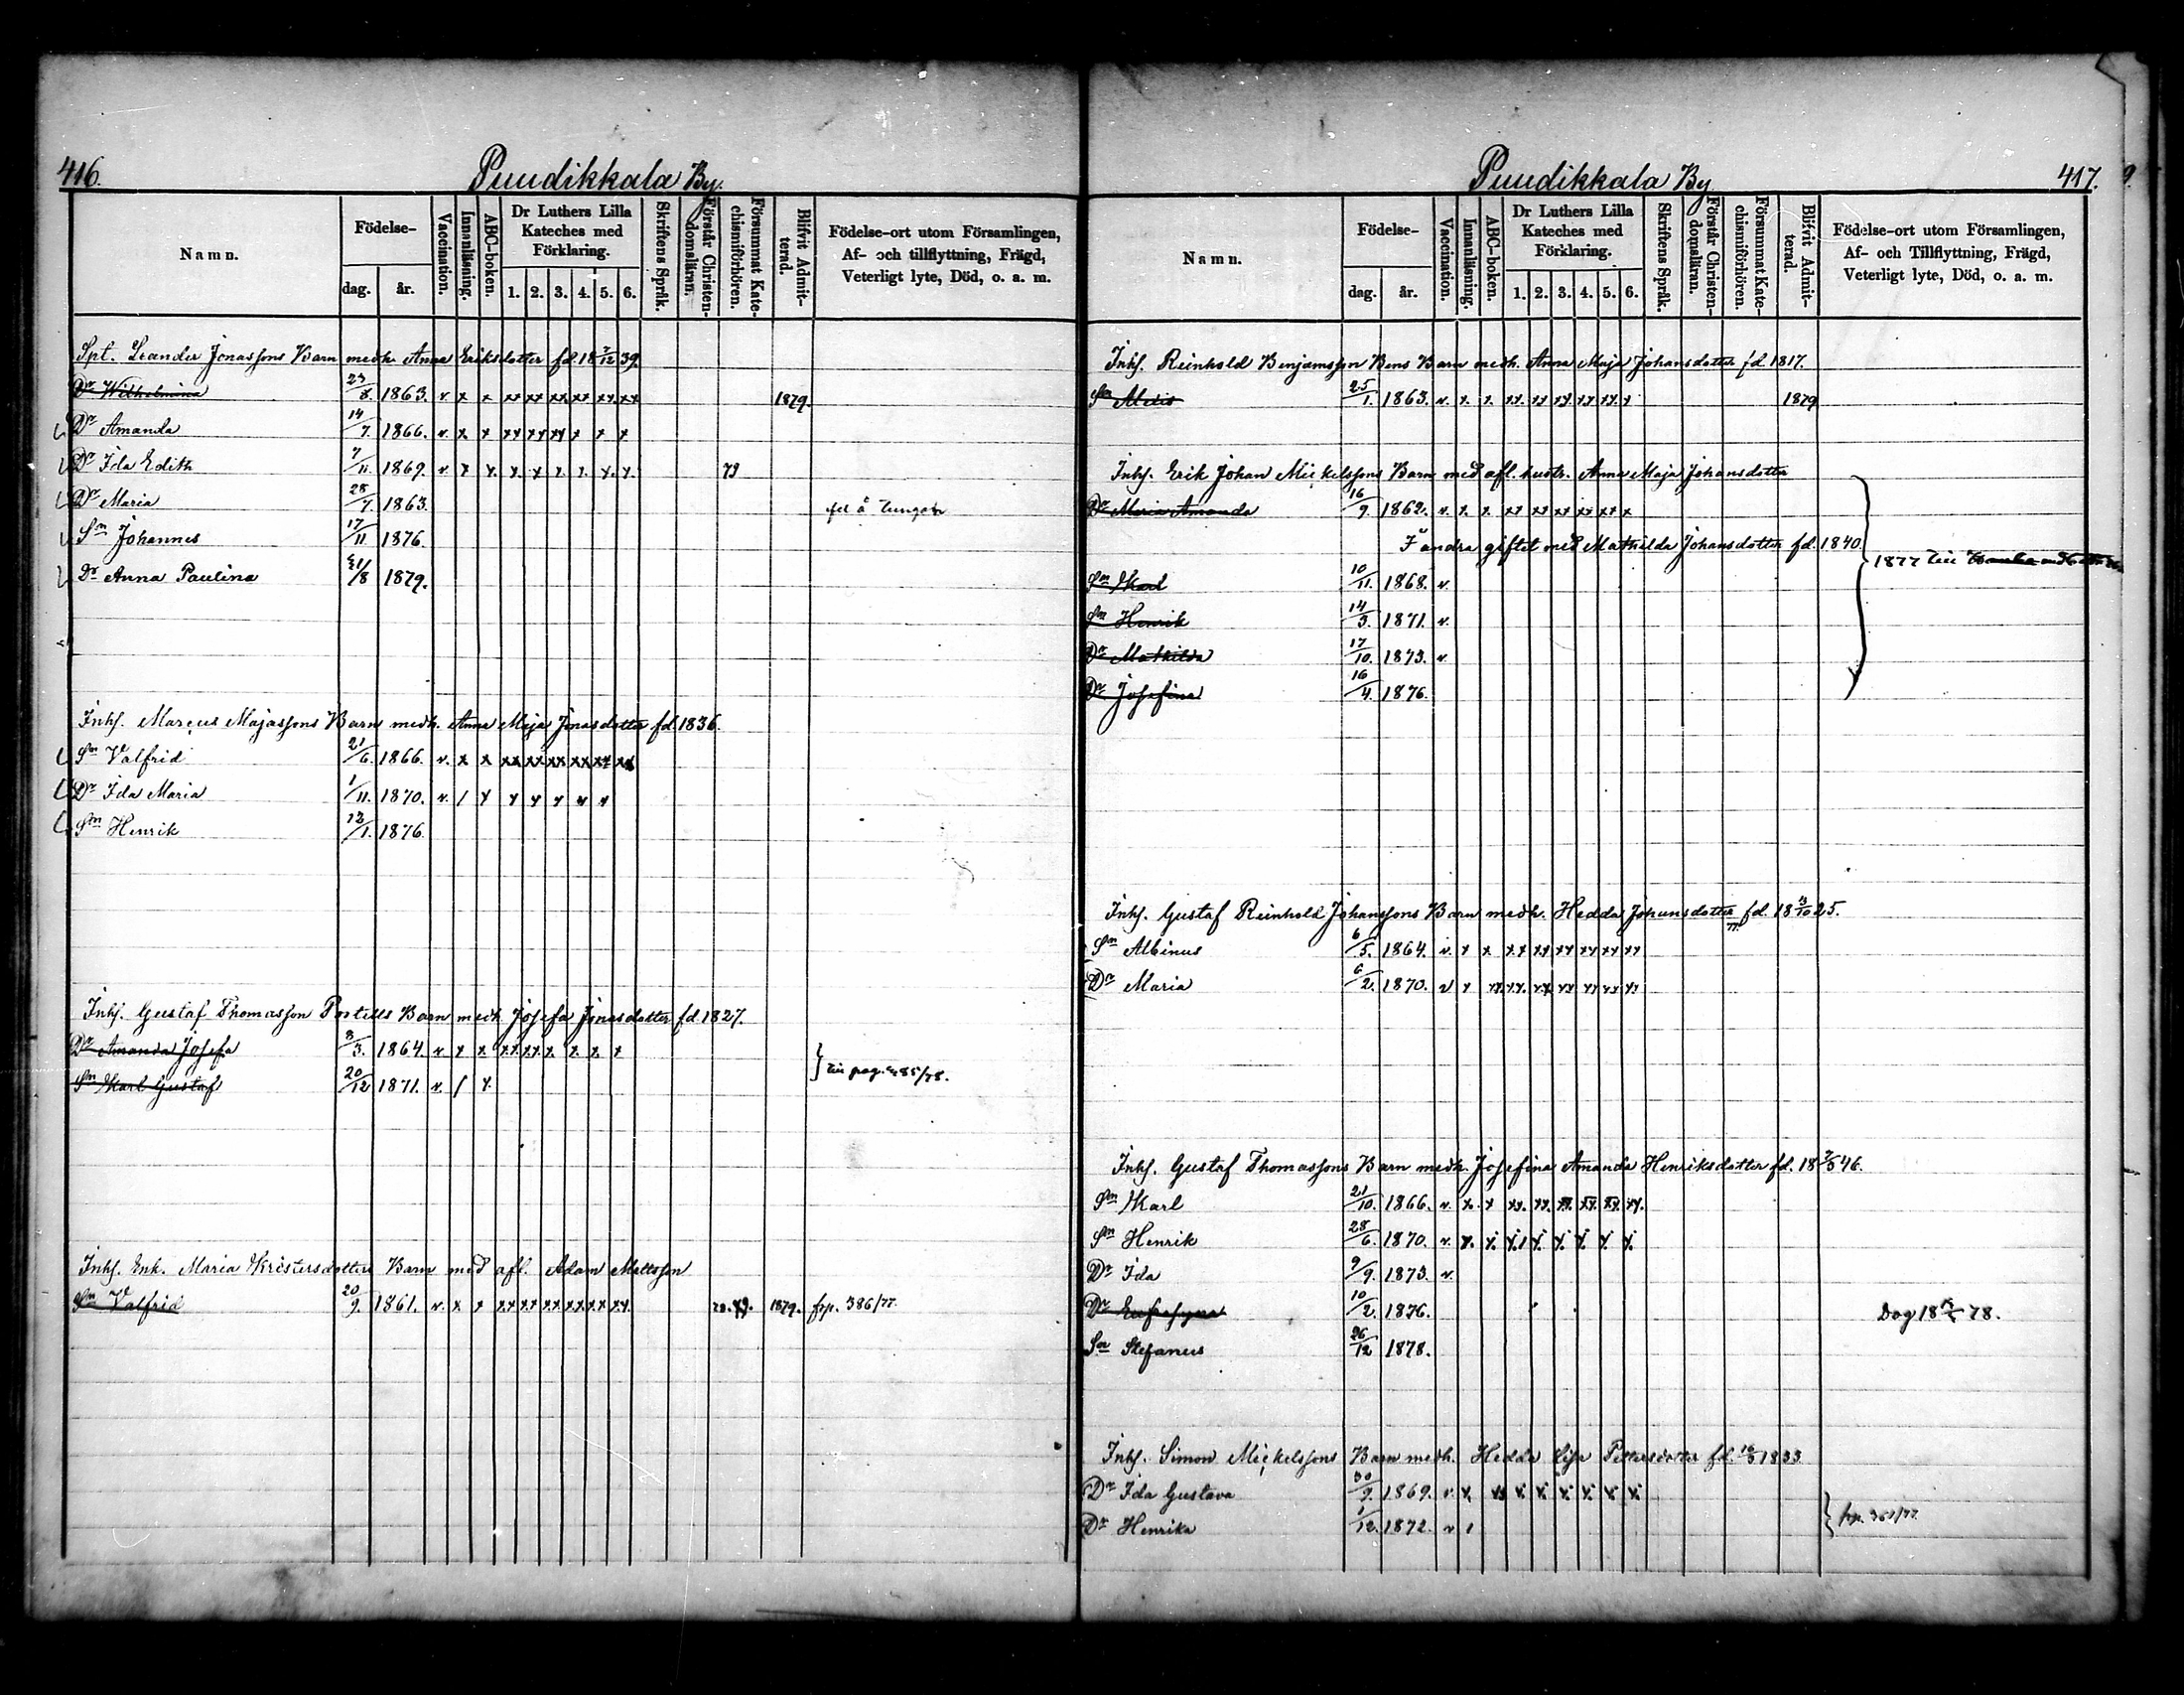 416.
Puudikkala By.
Namn.
Födelse-
dag.
år.
Vaccination.
Innanläsning.
ABC-boken.
Dr Luthers Lilla Kateches med Förklaring.
1. 2. 3. 4. 5. 6.
Skriftens Språk.
Förstår Christen-domsläran.
Försummat Kate-chismiförhören.
Blifvit Admit-terad.
Födelse-ort utom Församlingen,
Af- och tillflyttning, Frägd,
Veterligt lyte, Död, o. a. m.
Spl. Leander Jonassons Barn medh. Anna Eriksdotter fd. 18 7/12 39.
Dr Wilhelmina 23/8. 1863. v. x x xx xx xx xx xx xx 1879.
Dr Amanda 14/7. 1866. v. x x xx xx xx x x x
Dr Ida Edith 7/11. 1869. v. x x. x. x x. x. x. x. 79
Dr Maria 28/7. 1863. fel å tungan
Sn Johannes 17/11 1876.
Dr Anna Paulina 21/8 1879.
Inhs. Marcus Majassons Barn medh. Anna Maja Jonasdotter fd. 1836.
Sn Valfrid 21/6. 1866. v. x x xx xx xx xx xx xx
Dr Ida Maria 1/11. 1870. v. / x x x x x x
Sn Henrik 12/1. 1876.
Inhs. Gustaf Thomasson Barn medh Josefa Jonasdotter fd 1827.
Dr Amanda Josefa 8/3. 1864. v x x. xx xx x. x. x. x
Sn Karl Gustaf 20/12 1871. v. / x.
} till pag. 485/78.
Inhs. Enk. Maria Kristersdotters Barn med afl. Adam Mattsson
Sn Valfrid 20/9. 1861. v. x x xx xx xx xx xx xx. 1879. frp. 386/77.
417.
Puudikkala By
Namn.
Födelse-
dag.
år.
Vaccination.
Innanläsning.
ABC-boken.
Dr Luthers Lilla Kateches med Förklaring.
1. 2. 3. 4. 5. 6.
Skriftens Språk.
Förstår Christen-domsläran.
Försummat Kate-chismiförhören.
Blifvit Admit-terad.
Födelse-ort utom Församlingen,
Af- och Tillflyttning, Frägd,
Veterligt lyte, Död, o. a. m.
Inhs. Reinhold Benjamsson Barn medh. Anna Maja Johansdotter fd 1817.
Sn 25/1. 1863. v. x. x. xx. xx xx xx xx. x 1879
Inhs. Erik Johan Mickelssons Barn med afl. hustr. Anna Maja Johansdotter
Dr Maria Amanda 16/9. 1862. v. x. x. xx xx xx xx xx x
I andra giftet med Mathilda Johansdotter fd. 1840.
Sn Karl 10/11. 1868. v.
Sn Henrik 14/3. 1871. v.
Dr Mathilda 17/10. 1873. v.
Dr Josefina 16/4. 1876.
1877 till
Inhs. Gustaf Reinhold Johanssons Barn medh. Hedda Johansdotter fd. 18 25.
Sn Albinus 6/5. 1864. v. x x xx xx xx xx xx xx
Dr Maria 6/2. 1870. v x xx. xx. xx xx xx xx xx
Inhs. Gustaf Thomassons Barn medh. Josefina Amanda Henriksdotter fd. 18 46.
Sn Karl 21/10. 1866. v. x. x xx. xx. xx. xx. xx. xx.
Sn Henrik 28/6. 1870. v. x. x. x. x. x. x. x. x.
Dr Ida 9/9. 1873. v.
Dr Eufrosyna 10/2. 1876. Dog 18 78.
Sn Stefanus 26/12 1878.
Inhs. Simon Mickelssons Barn medh. Hedda Lisa Pettersdotter fd. 1833
Dr Ida Gustava 30/9. 1869. v. x. x x. x. x. x. x. x.
Dr Henrika 1/12. 1872. v 1